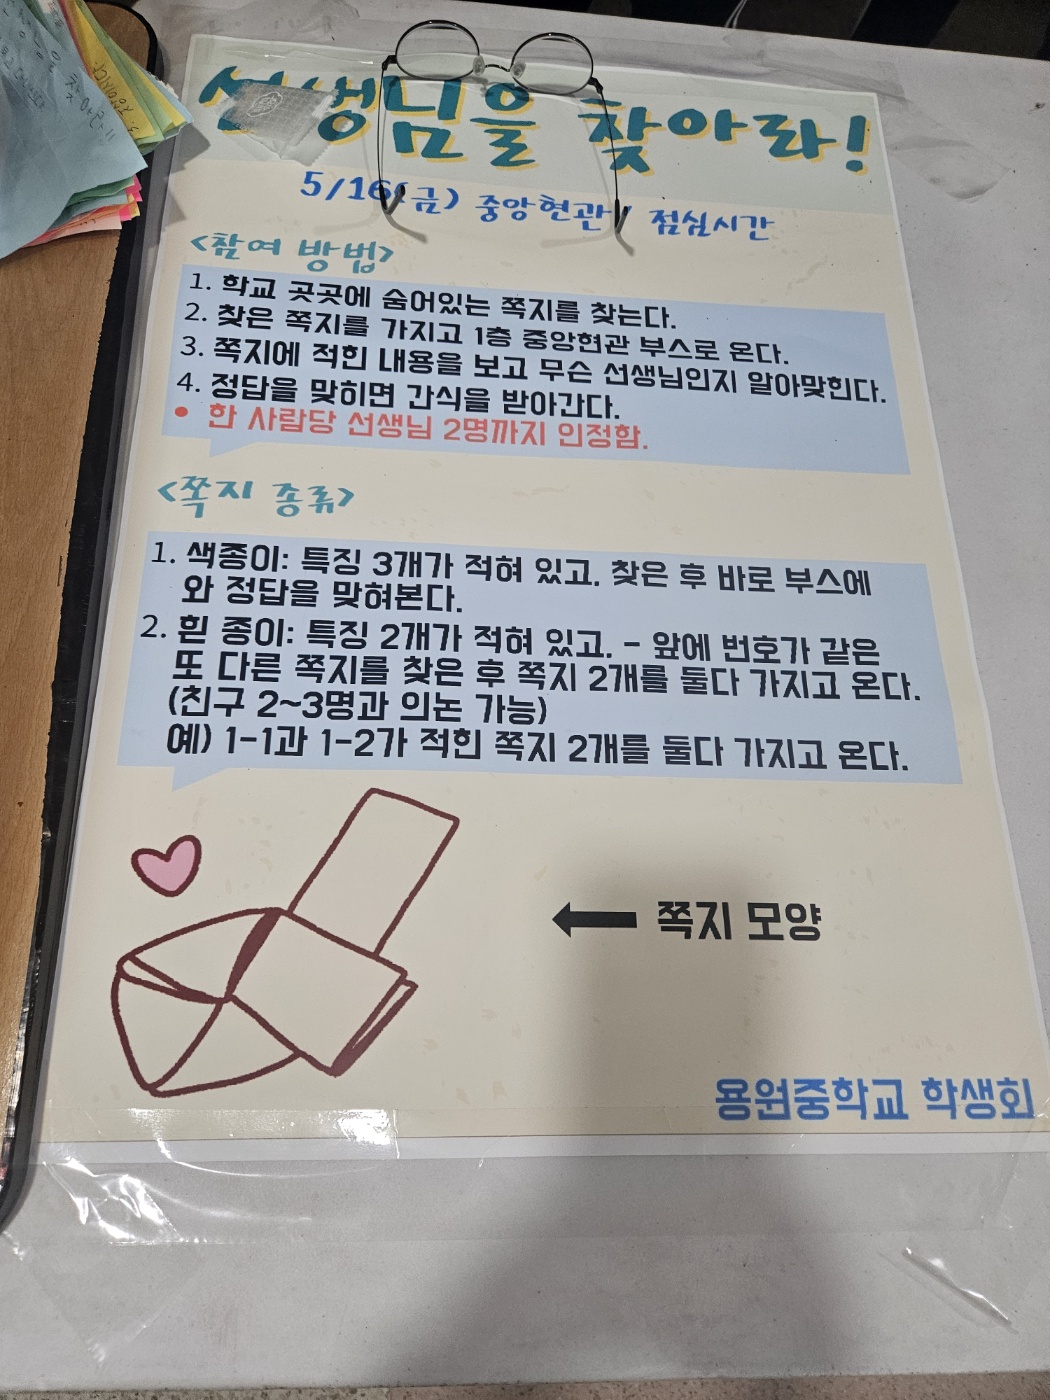 선생님을 찾아라!
5/16(금) 중앙현관 / 점심시간
<참여 방법>
1. 학교 곳곳에 숨어있는 쪽지를 찾는다.
2. 찾은 쪽지를 가지고 1층 중앙현관 부스로 온다.
3. 쪽지에 적힌 내용을 보고 무슨 선생님인지 알아맞힌다.
4. 정답을 맞히면 간식을 받아간다.
• 한 사람당 선생님 2명까지 인정함.
<쪽지 종류>
1. 색종이: 특징 3개가 적혀 있고. 찾은 후 바로 부스에
와 정답을 맞혀본다.
2. 흰 종이: 특징 2개가 적혀 있고. - 앞에 번호가 같은
또 다른 쪽지를 찾은 후 쪽지 2개를 둘다 가지고 온다.
(친구 2~3명과 의논 가능)
예) 1-1과 1-2가 적힌 쪽지 2개를 둘다 가지고 온다.
← 쪽지 모양
용원중학교 학생회